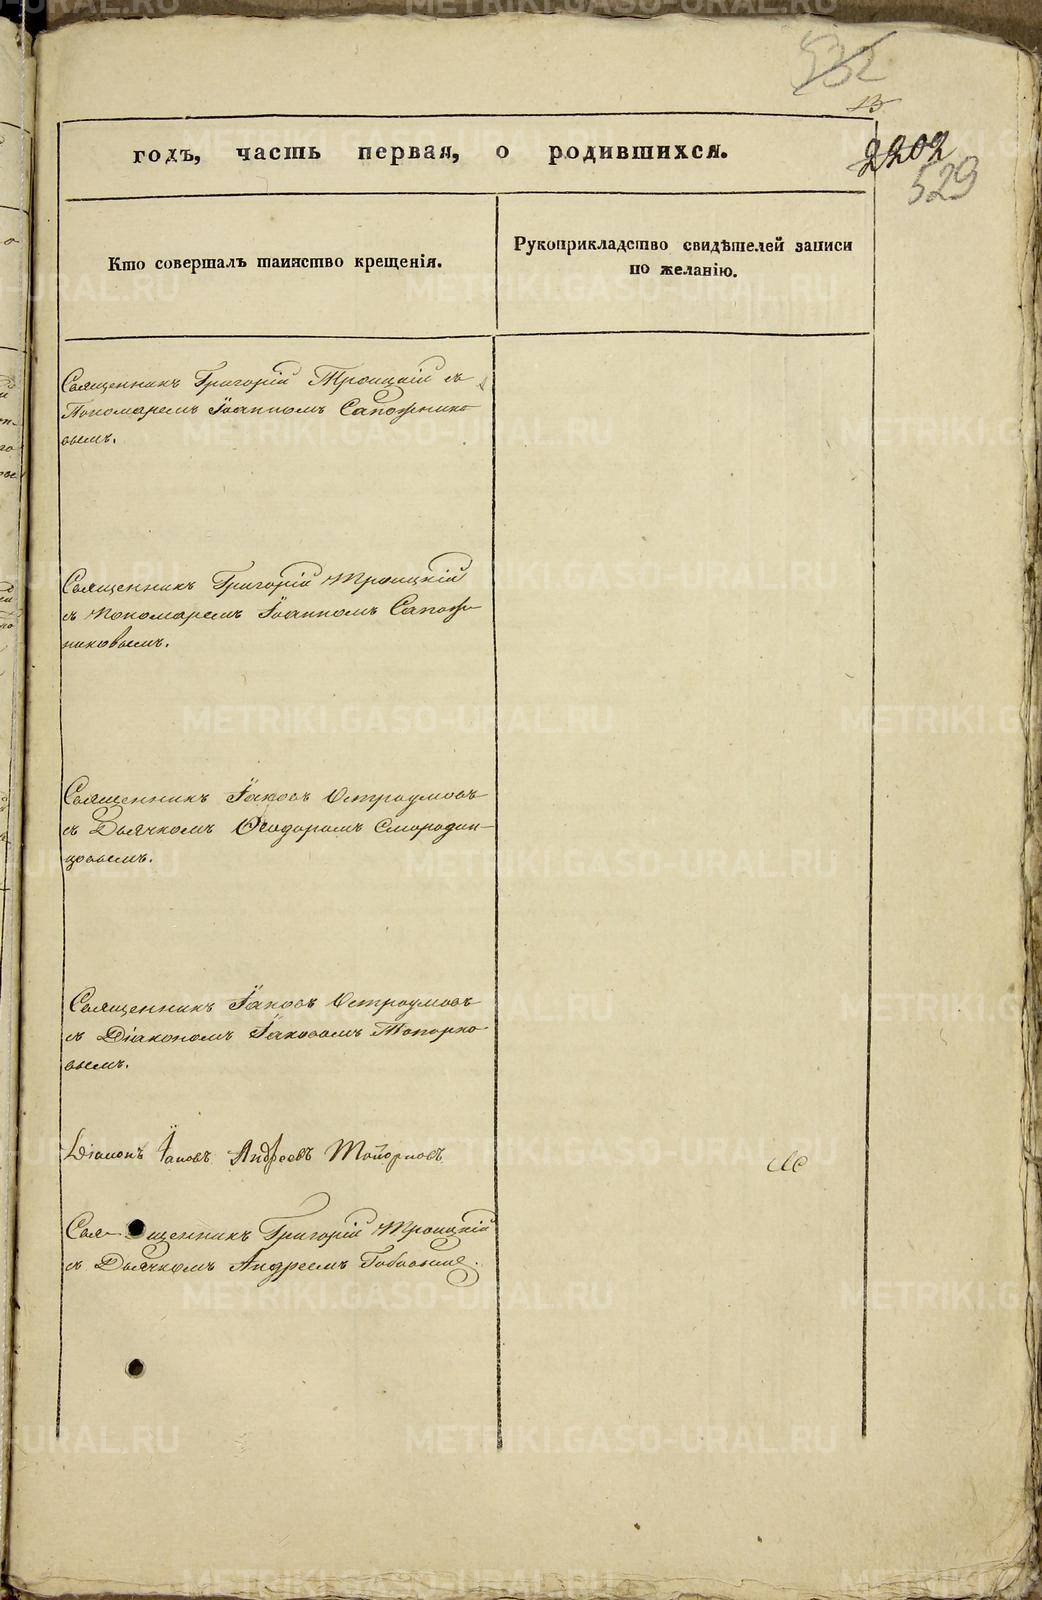 532
13
2202
529
годъ, часть первая, о родившихся.
Кто совершалъ таинство крещенія.
Рукоприкладство свидѣтелей записи
по желанію.
Священникъ Григорій Троицкій съ
Пономаремъ Іоанномъ Сапожнико
вымъ.
Священникъ Григорій Троицкій
съ Пономаремъ Іоанномъ Сапож
никовымъ.
Священникъ Іаковъ Остроумовъ
съ Дьячкомъ Ѳеодоромъ Смородин-
цовымъ.
Священникъ Іаковъ Остроумовъ
съ Діакономъ Іаковомъ Топорко
вымъ.
Діаконъ Іаковъ Андреевъ Топорковъ
Свя- щенникъ Григорій Троицкій
съ Дьячкомъ Андреемъ
METRIKI.GASO-URAL.RU